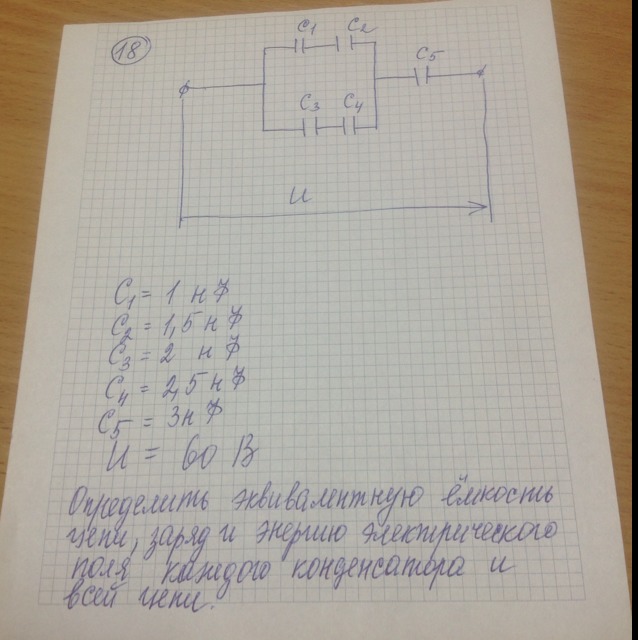 18
C1 C2
C5
C3 C4
U
C1 = 1 нФ
C2 = 1,5 нФ
C3 = 2 нФ
C4 = 2,5 нФ
C5 = 3 нФ
U = 60 В
Определить эквивалентную ёмкость
цепи, заряд и энергию электрического
поля каждого конденсатора и
всей цепи.